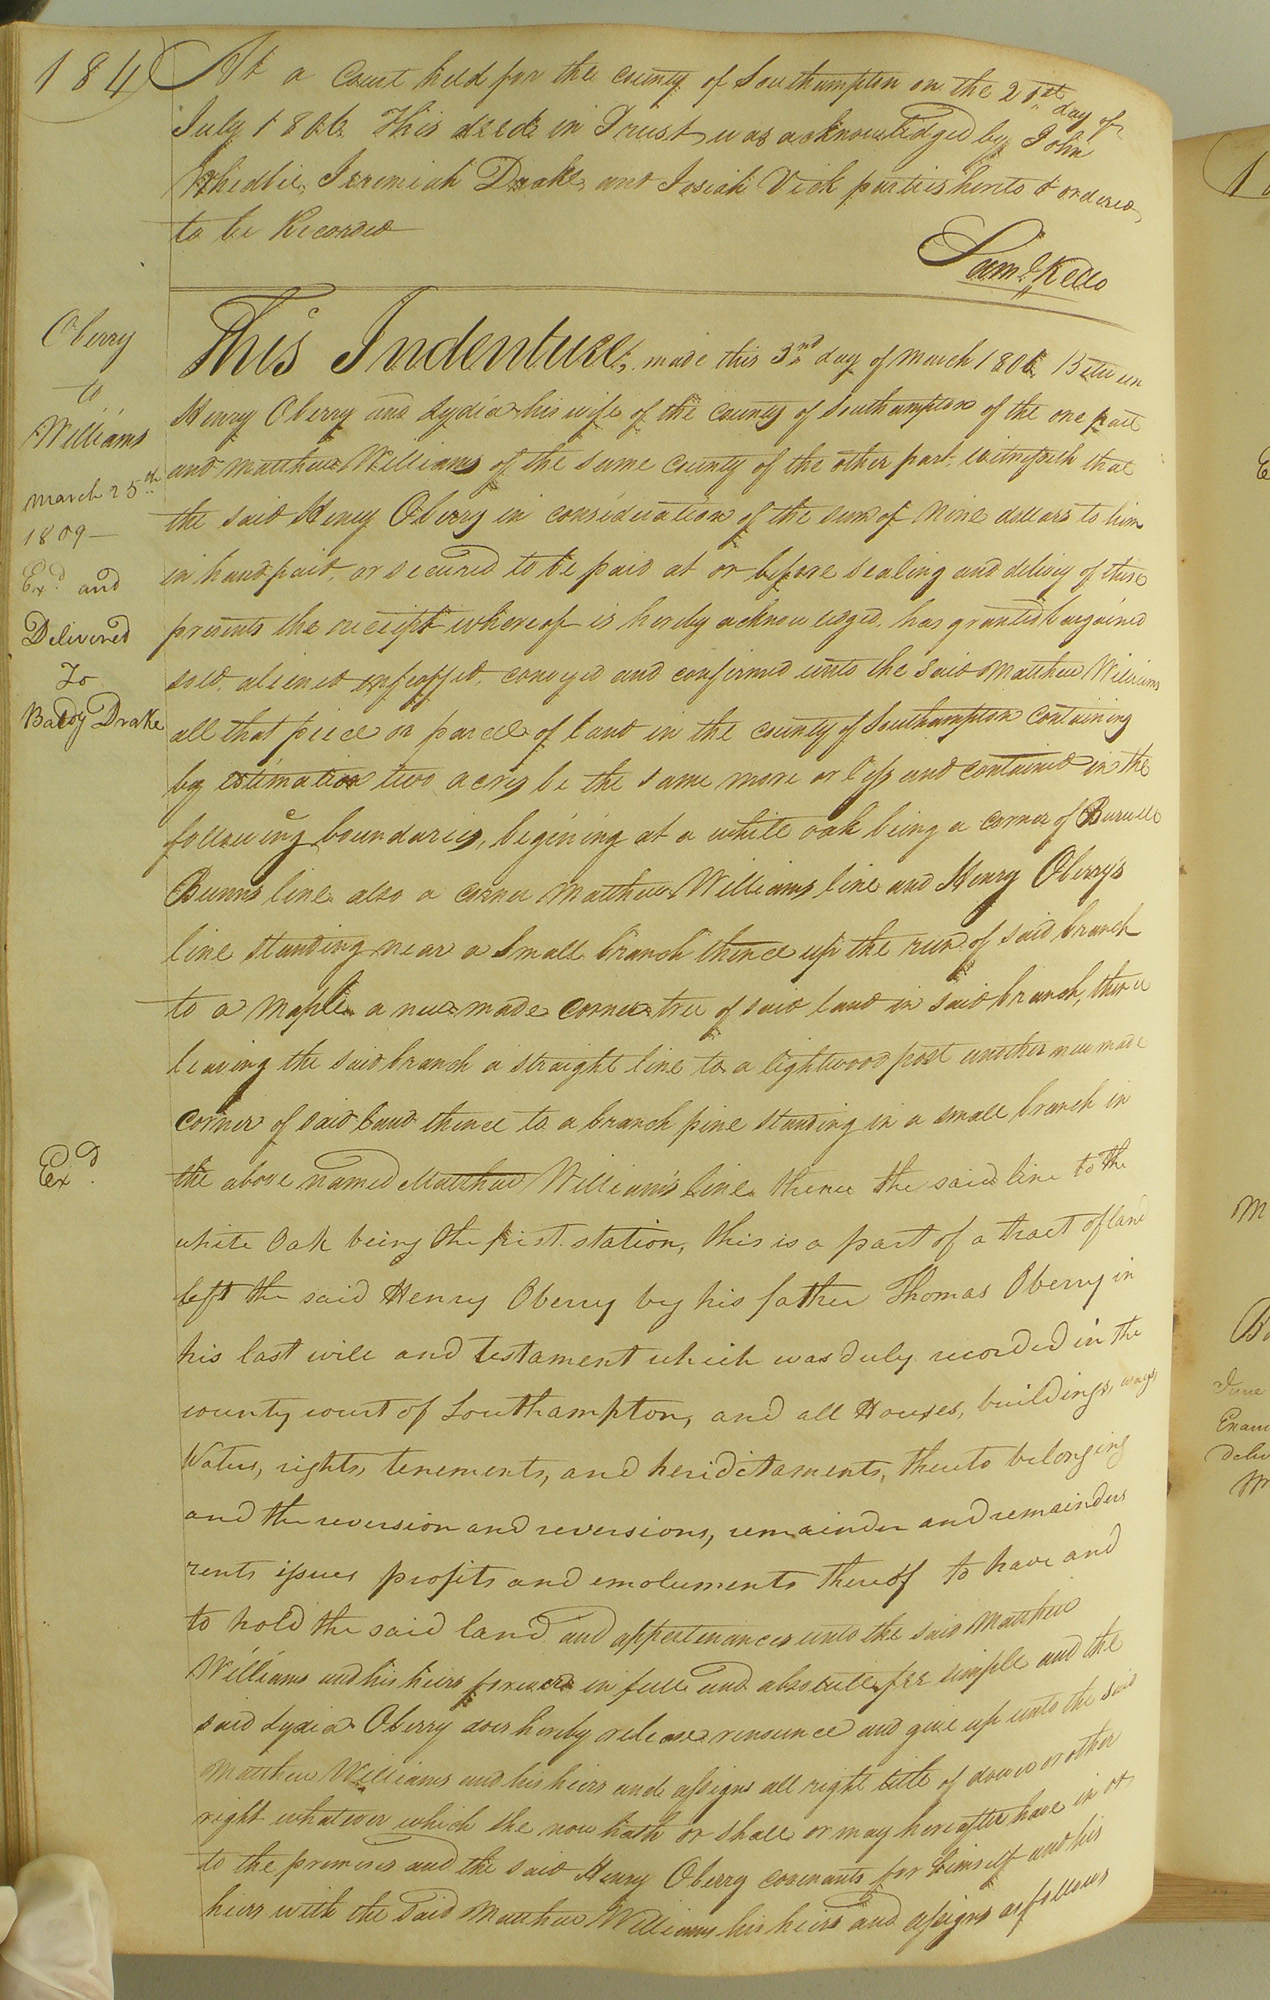 184
At a Court held for the county of Southampton on the 21st day of
July 1806 This deed in Trust was acknowledged by John
Rhedlie, Jeremiah Drake, and Josiah Vick parties hereto & ordered
to be Recorded
Saml Kello
Oberry
to
Williams
March 25th
1809—
Exd and
Delivered
To
Baldy Drake
This Indenture, made this 3rd day of March 1806 Between
Henry Oberry and Lydia his wife of the county of Southampton of the one part
and Matthew Williams of the same county of the other part, witnesseth that
the said Henry Oberry in consideration of the sum of Nine dollars to him
in hand paid, or secured to be paid at or before sealing and delivey of these
presents the receipt whereof is hereby acknowledged, has granted bargained
sold, aliened enfeoffed, conveyed and confirmed unto the said Matthew Williams
all that piece or parcel of land in the county of Southampton containing
by estimation two acres be the same more or less and contained in the
following boundaries, begining at a white oak being a corner of Burwell
Bunns line also a corner Matthew Williams line and Henry Oberry's
line standing near a small branch thence up the run of said branch
to a Maple a new made corner tree of said land in said branch, thence
leaving the said branch a straight line to a lightwood post another new made
corner of said land thence to a branch pine standing in a small branch in
Exd.
the above named Matthew William's line thence the said line to the
white Oak being the first station, this is a part of a tract of land
left the said Henry Oberry by his father Thomas Oberry in
his last will and testament which was duly recorded in the
county court of Southampton, and all Houses, buildings, ways
Waters, rights, tenements, and heridetaments, thereto belonging
and the reversion and reversions, remainder and remainders
rents issues profits and emoluments thereof to have and
to hold the said land and appertenances unto the said Matthew
Williams and his heirs forever in full and absolute fee simple and the
said Lydia Oberry does hereby release renounce and give up unto the said
Matthew Williams and his heirs and assigns all right title of dower or other
right whatever which she now hath or shall or may hereafter have in or
to the premises and the said Henry Oberry covenants for himself and his
heirs with the said Matthew Williams his heirs and assigns as follows